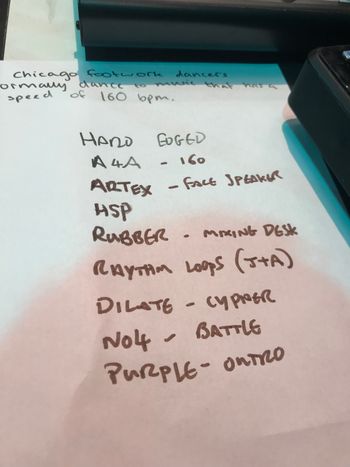 Chicago footwork dancers
ormally dance to music that has a
speed of 160 bpm.
HARD EDGED
A4A - 160
ARTEX - FACE SPEAKER
HSP
RUBBER - MIXING DESK
RHYTHM LOOPS (J+A)
DILATE - CYPHER
NO4 - BATTLE
PURPLE - OUTRO